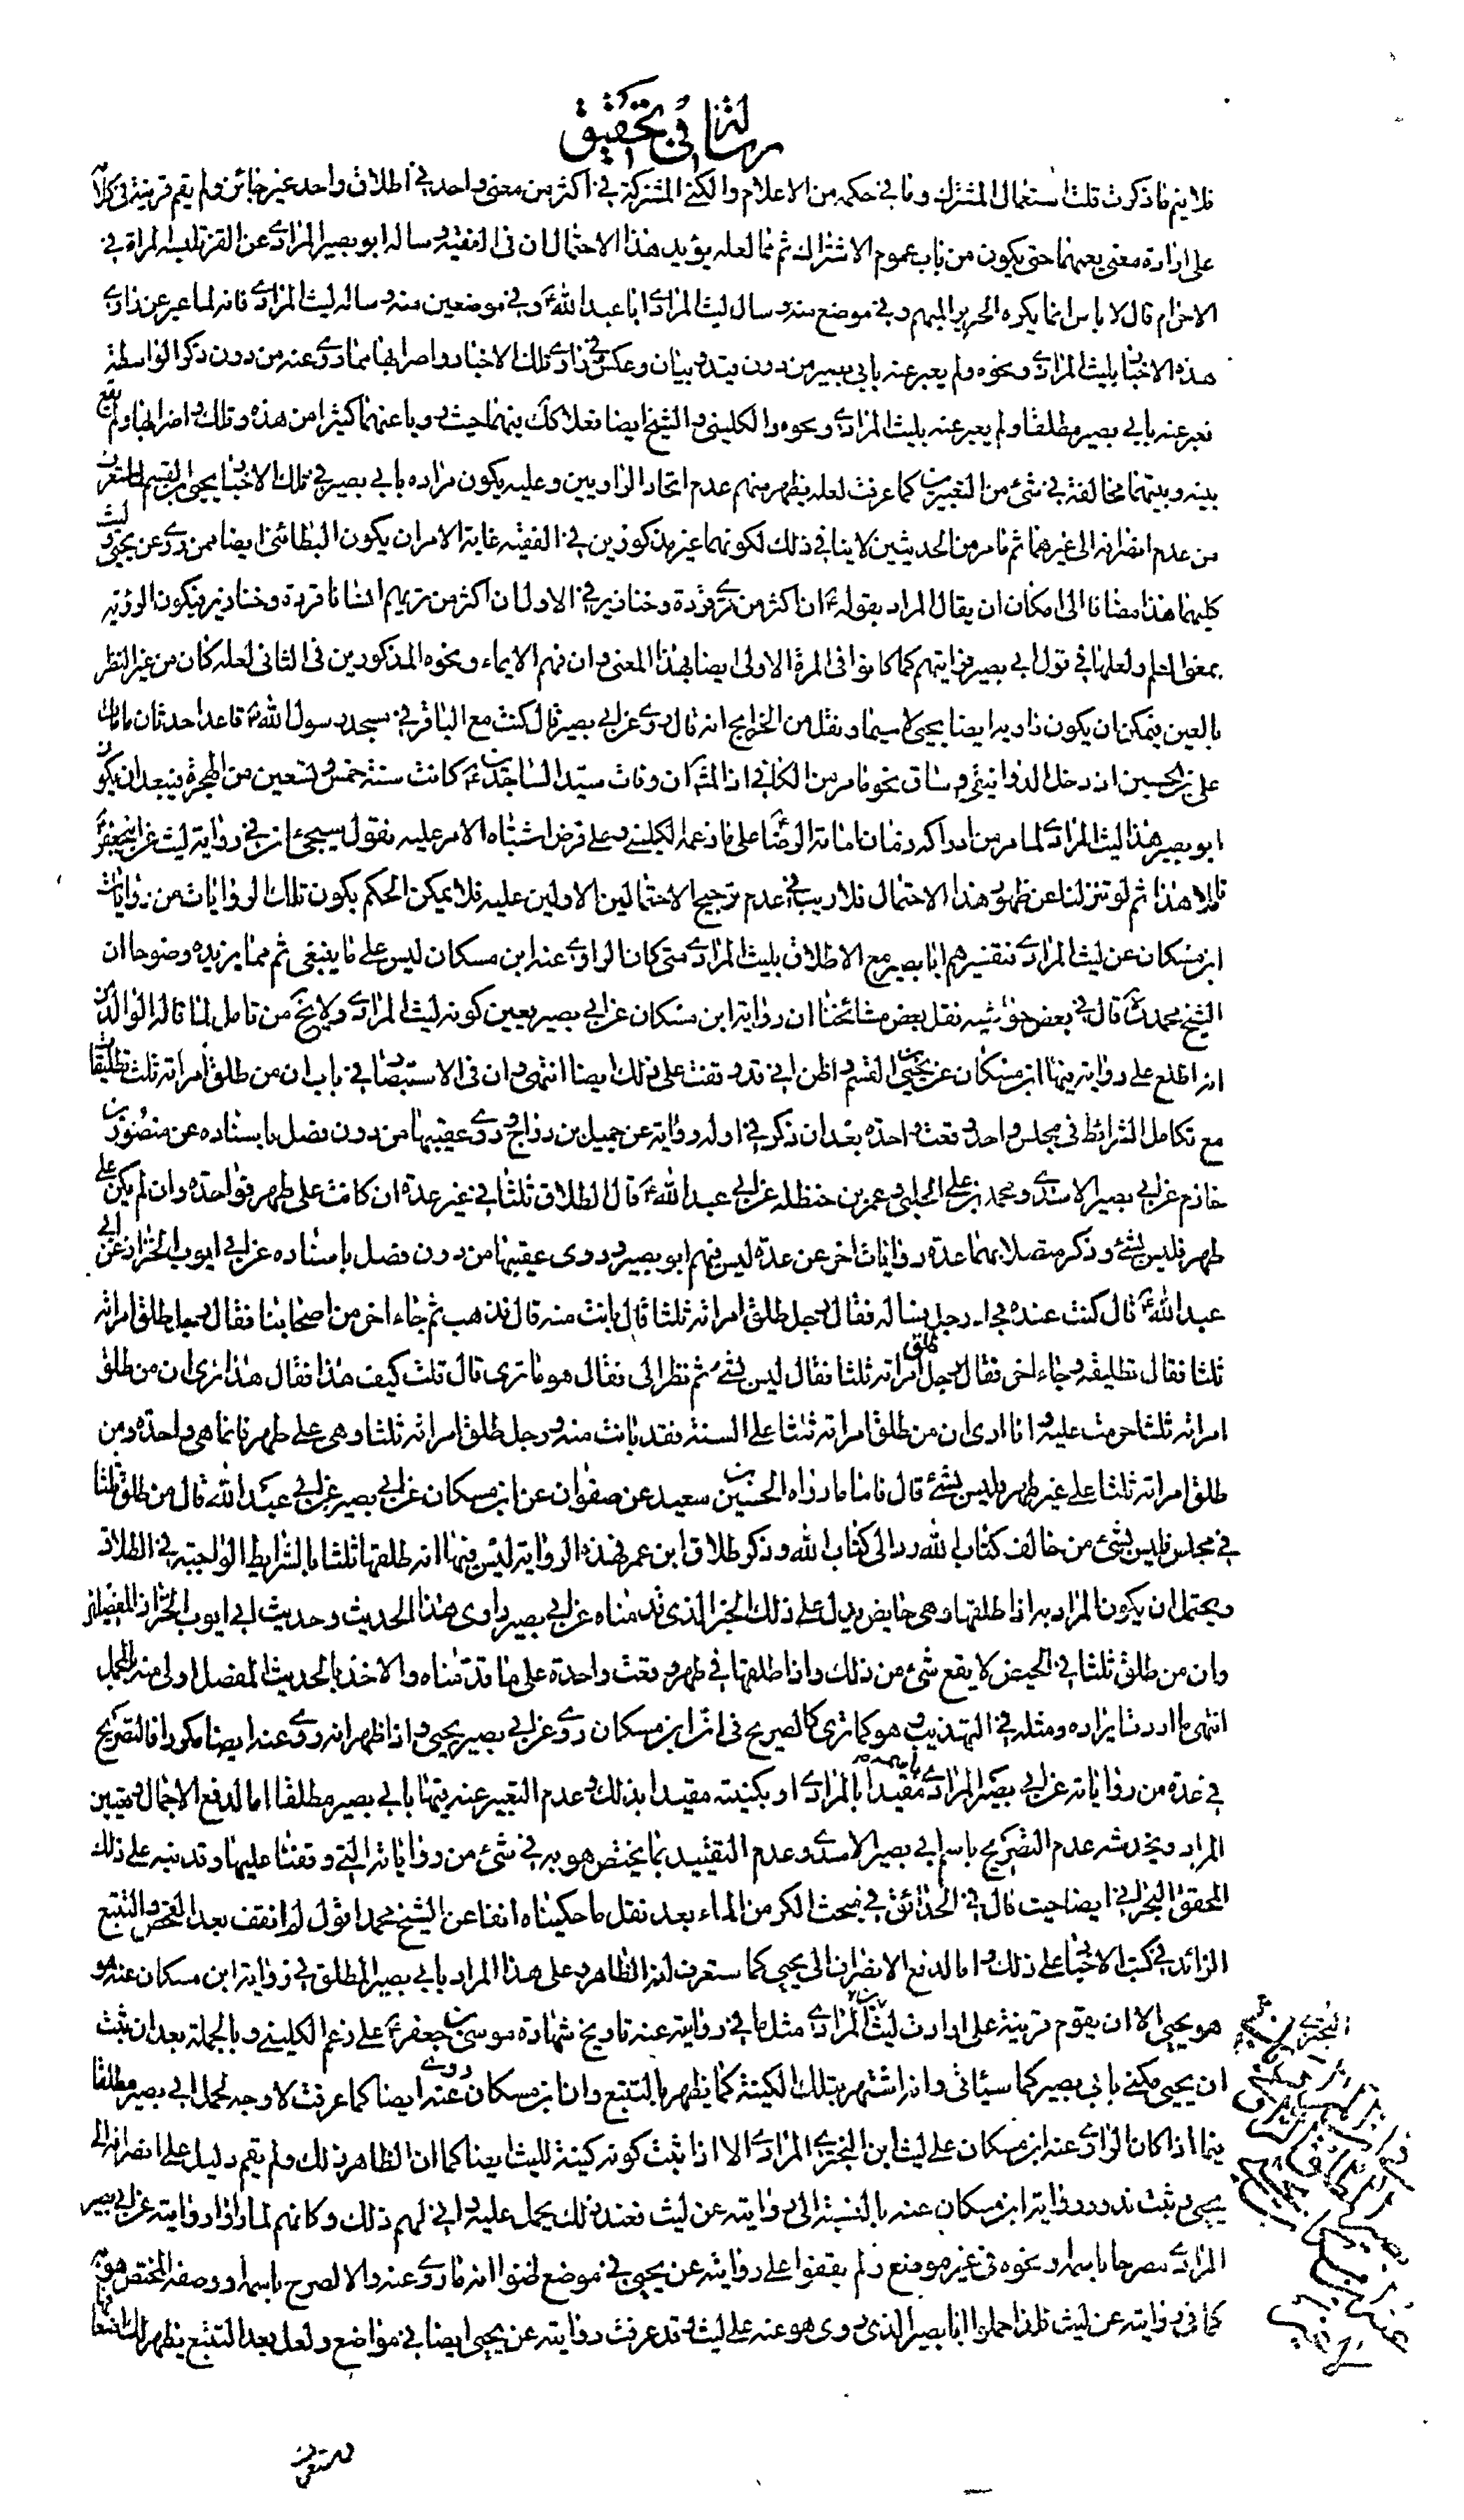 رسالة في تحقيق
فلا يتم ما ذكرت قلت استعمال المشترك وما في حكمه من الاعلام والكنى المشتركة في اكثر من معنى واحد في اطلاق واحد غير جائز ولم يقم قرينة في كلامه
على ارادة معنى يعمهما حتى يكون من باب عموم الاشتراك ثم مما لعله يؤيد هذا الاحتمال ان في الفقيه وساله ابو بصير المرادي عن القز تلبسه المراة في
الاحرام قال لا باس انما يكره الحرير المبهم وفي موضع منه وسال ليث المرادي ابا عبد الله ع وفي موضعين منه وساله ليث المرادي فانه لما عبر عن راوي
هذه الاخبار بليث المرادي ونحوه ولم يعبر عنه بابي بصير من دون قيد وبيان وعكس في راوي تلك الاخبار واضرابها مما روى عنه من دون ذكر الواسطة
فعبر عنه بابي بصير مطلقا ولم يعبر عنه بليث المرادي ونحوه والكليني والشيخ ايضا فعلا كك بينهما حيث رويا عنهما كثيرا من هذه وتلك واضرابها ولم يقع
بينه وبينهما مخالفة في شئ من التعبيرين كما عرفت لعله يظهر منهم عدم اتحاد الراويين وعليه يكون مراده بابي بصير في تلك الاخبار يحيى بن القسم لما ستعرف
من عدم انصرافه الى غيرهما ثم ما مر من الحديثين لا ينافي ذلك لكونهما غير مذكورين في الفقيه غاية الامر ان يكون البطائني ايضا ممن روى عن يحيى وليث
كليهما هذا مضافا الى امكان ان يقال المراد بقوله ع ان اكثر من ترى قردة وخنازير في الاول ان اكثر من تريهم انسانا قردة وخنازير فيكون الرؤية
بمعنى العلم ولعلها في قول ابي بصير فرايتهم كما كانوا في المرة الاولى ايضا بهذا المعنى وان فهم الايماء ونحوه المذكورين في الثاني لعله كان من غير النظر
بالعين فيمكن ان يكون راويه ايضا يحيى لا سيما ونقل من الخرايج انه قال روى عن ابي بصير قال كنت مع الباقر في مسجد رسول الله ص قاعدا حدثان ما مات
علي بن الحسين اذ دخل الدوانيقي وساق نحو ما مر من الكافي اذ المشهر ان وفات سيد الساجدين ع كانت سنة خمس وتسعين من الهجرة فيبعد ان يكون
ابو بصير هذا ليث المرادي لما مر من ادراكه زمان امامة الرضا ع على ما زعمه الكليني وعلى فرض اشتباه الامر عليه نقول سيجئ انه في رواية ليث عن ابي جعفر ع
تاملا هذا ثم لو تنزلنا عن ظهور هذا الاحتمال فلا ريب في عدم ترجيح الاحتمالين الاولين عليه فلا يمكن الحكم بكون تلك الروايات من روايات
ابن مسكان عن ليث المرادي فتفسيرهم ابا بصير مع الاطلاق بليث المرادي متى كان الراوي عنه ابن مسكان ليس على ما ينبغي ثم مما يزيده وضوحا ان
الشيخ محمد ره قال في بعض حواشيه نقل بعض مشائخنا ان رواية ابن مسكان عن ابي بصير يعين كونه ليث المرادي ولا يخ من تامل لما قاله الوالد من
انه اطلع على رواية فيها ابن مسكان عن يحيى بن القسم واظن اني قد وقفت على ذلك ايضا انتهى وان في الاستبصار في باب ان من طلق امراته ثلث تطليقات
مع تكامل الشرائط في مجلس واحد وقعت واحدة بعد ان ذكر في اوله رواية عن جميل بن دراج وروى عقيبها من دون فصل باسناده عن منصور بن
حازم عن ابي بصير الاسدي ومحمد بن علي الحلبي وعمر بن حنظله عن ابي عبد الله ع قال الطلاق ثلثا في غير عدة ان كانت على طهر فواحدة وان لم يكن على
طهر فليس بشئ وذكر متصلا بهما عدة روايات اخر عن عدة ليس فيهم ابو بصير وروى عقيبها من دون فصل باسناده عن ابي ايوب الخزاز عن ابي
عبد الله ع قال كنت عنده فجاء رجل يساله فقال رجل طلق امراته ثلثا قال بانت منه قال فذهب ثم جاء اخر من اصحابنا فقال رجل طلق امراته
ثلثا فقال تطليقة وجاء اخر فقال رجل طلق امراته ثلثا فقال ليس بشئ ثم نظر الى فقال هو ما ترى قال قلت كيف هذا فقال هذا يرى ان من طلق
امراته ثلثا حرمت عليه وانا ارى ان من طلق امراته ثلثا على السنة فقد بانت منه ورجل طلق امراته ثلثا وهي على طهر فانما هي واحدة ومن
طلق امراته ثلثا على غير طهر فليس بشئ قال فاما ما رواه الحسين بن سعيد عن صفوان عن ابن مسكان عن ابي بصير عن ابي عبد الله قال من طلق ثلثا
في مجلس فليس بشئ من خالف كتاب الله رد الى كتاب الله وذكر طلاق ابن عمر فهذه الرواية ليس فيها انه طلقها ثلثا بالشرايط الواجبة في الطلاق
ويحتمل ان يكون المراد به اذا طلقها وهي حايض يدل على ذلك الخبر الذي قدمناه عن ابي بصير راوي هذا الحديث وحديث ابي ايوب الخزاز المفصل
وان من طلق ثلثا في الحيض لا يقع شئ من ذلك واذا طلقها في طهر وقعت واحدة على ما قدمناه والاخذ بالحديث المفصل اولى منه بالمجمل
انتهى ما اردنا ايراده ومثله في التهذيب وهو كما ترى كالصريح في ان ابن مسكان روى عن ابي بصير يحيى واذا ظهر انه روى عنه ايضا مكررا فالتصريح
في عدة من رواياته عن ابي بصير المرادي باسمه مقيدا بالمرادي او بكنيته مقيدا بذلك وعدم التعبير عنه فيها بابي بصير مطلقا اما لدفع الاجمال وتعيين
المراد ويخدشه عدم التصريح باسم ابي بصير الاسدي وعدم التقييد بما يختص هو به في شئ من رواياته التي وقفنا عليها وقد نبه على ذلك
المحقق البحراني ايضا حيث قال في الحدائق في مبحث الكر من الماء بعد نقل ما حكيناه انفا عن الشيخ محمد اقول لم اقف بعد الفحص والتتبع
الزائد في كتب الاخبار على ذلك واما لدفع الانصراف الى يحيى كما ستعرف انه الظاهر وعلى هذا المراد بابي بصير المطلق في رواية ابن مسكان عنه هو
هو يحيى الا ان يقوم قرينة على ارادة ليث المرادي مثل ما في روايته عنه تاريخ شهادة موسى بن جعفر ع على زعم الكليني وبالجملة بعد ان ثبت
ان يحيى مكنى بابي بصير كما سيأتي وانه اشتهر بتلك الكنية كما يظهر بالتتبع وان ابن مسكان روى عنه ايضا كما عرفت لا وجه لحمل ابي بصير مطلقا
فيما اذا كان الراوي عنه ابن مسكان على ليث ابن البختري المرادي الا اذا ثبت كونه كنية لليث ايضا كما ان الظاهر ذلك ولم يقم دليل على انصرافه الى
يحيى وثبت ندور رواية ابن مسكان عنه بالنسبة الى روايته عن ليث فعند ذلك يحمل عليه وانى لهم ذلك وكانهم لما راوا روايته عن ابي بصير
المرادي مصرحا باسمه ونحوه في غير موضع ولم يقفوا على روايته عن يحيى في موضع ظنوا انه ما روى عنه والا لصرح باسمه او وصفه المختص هو به
كما في روايته عن ليث فلذا حملوا ابا بصير الذي روى هو عنه على ليث وقد عرفت روايته عن يحيى ايضا في مواضع ولعل بعد التتبع يظهر